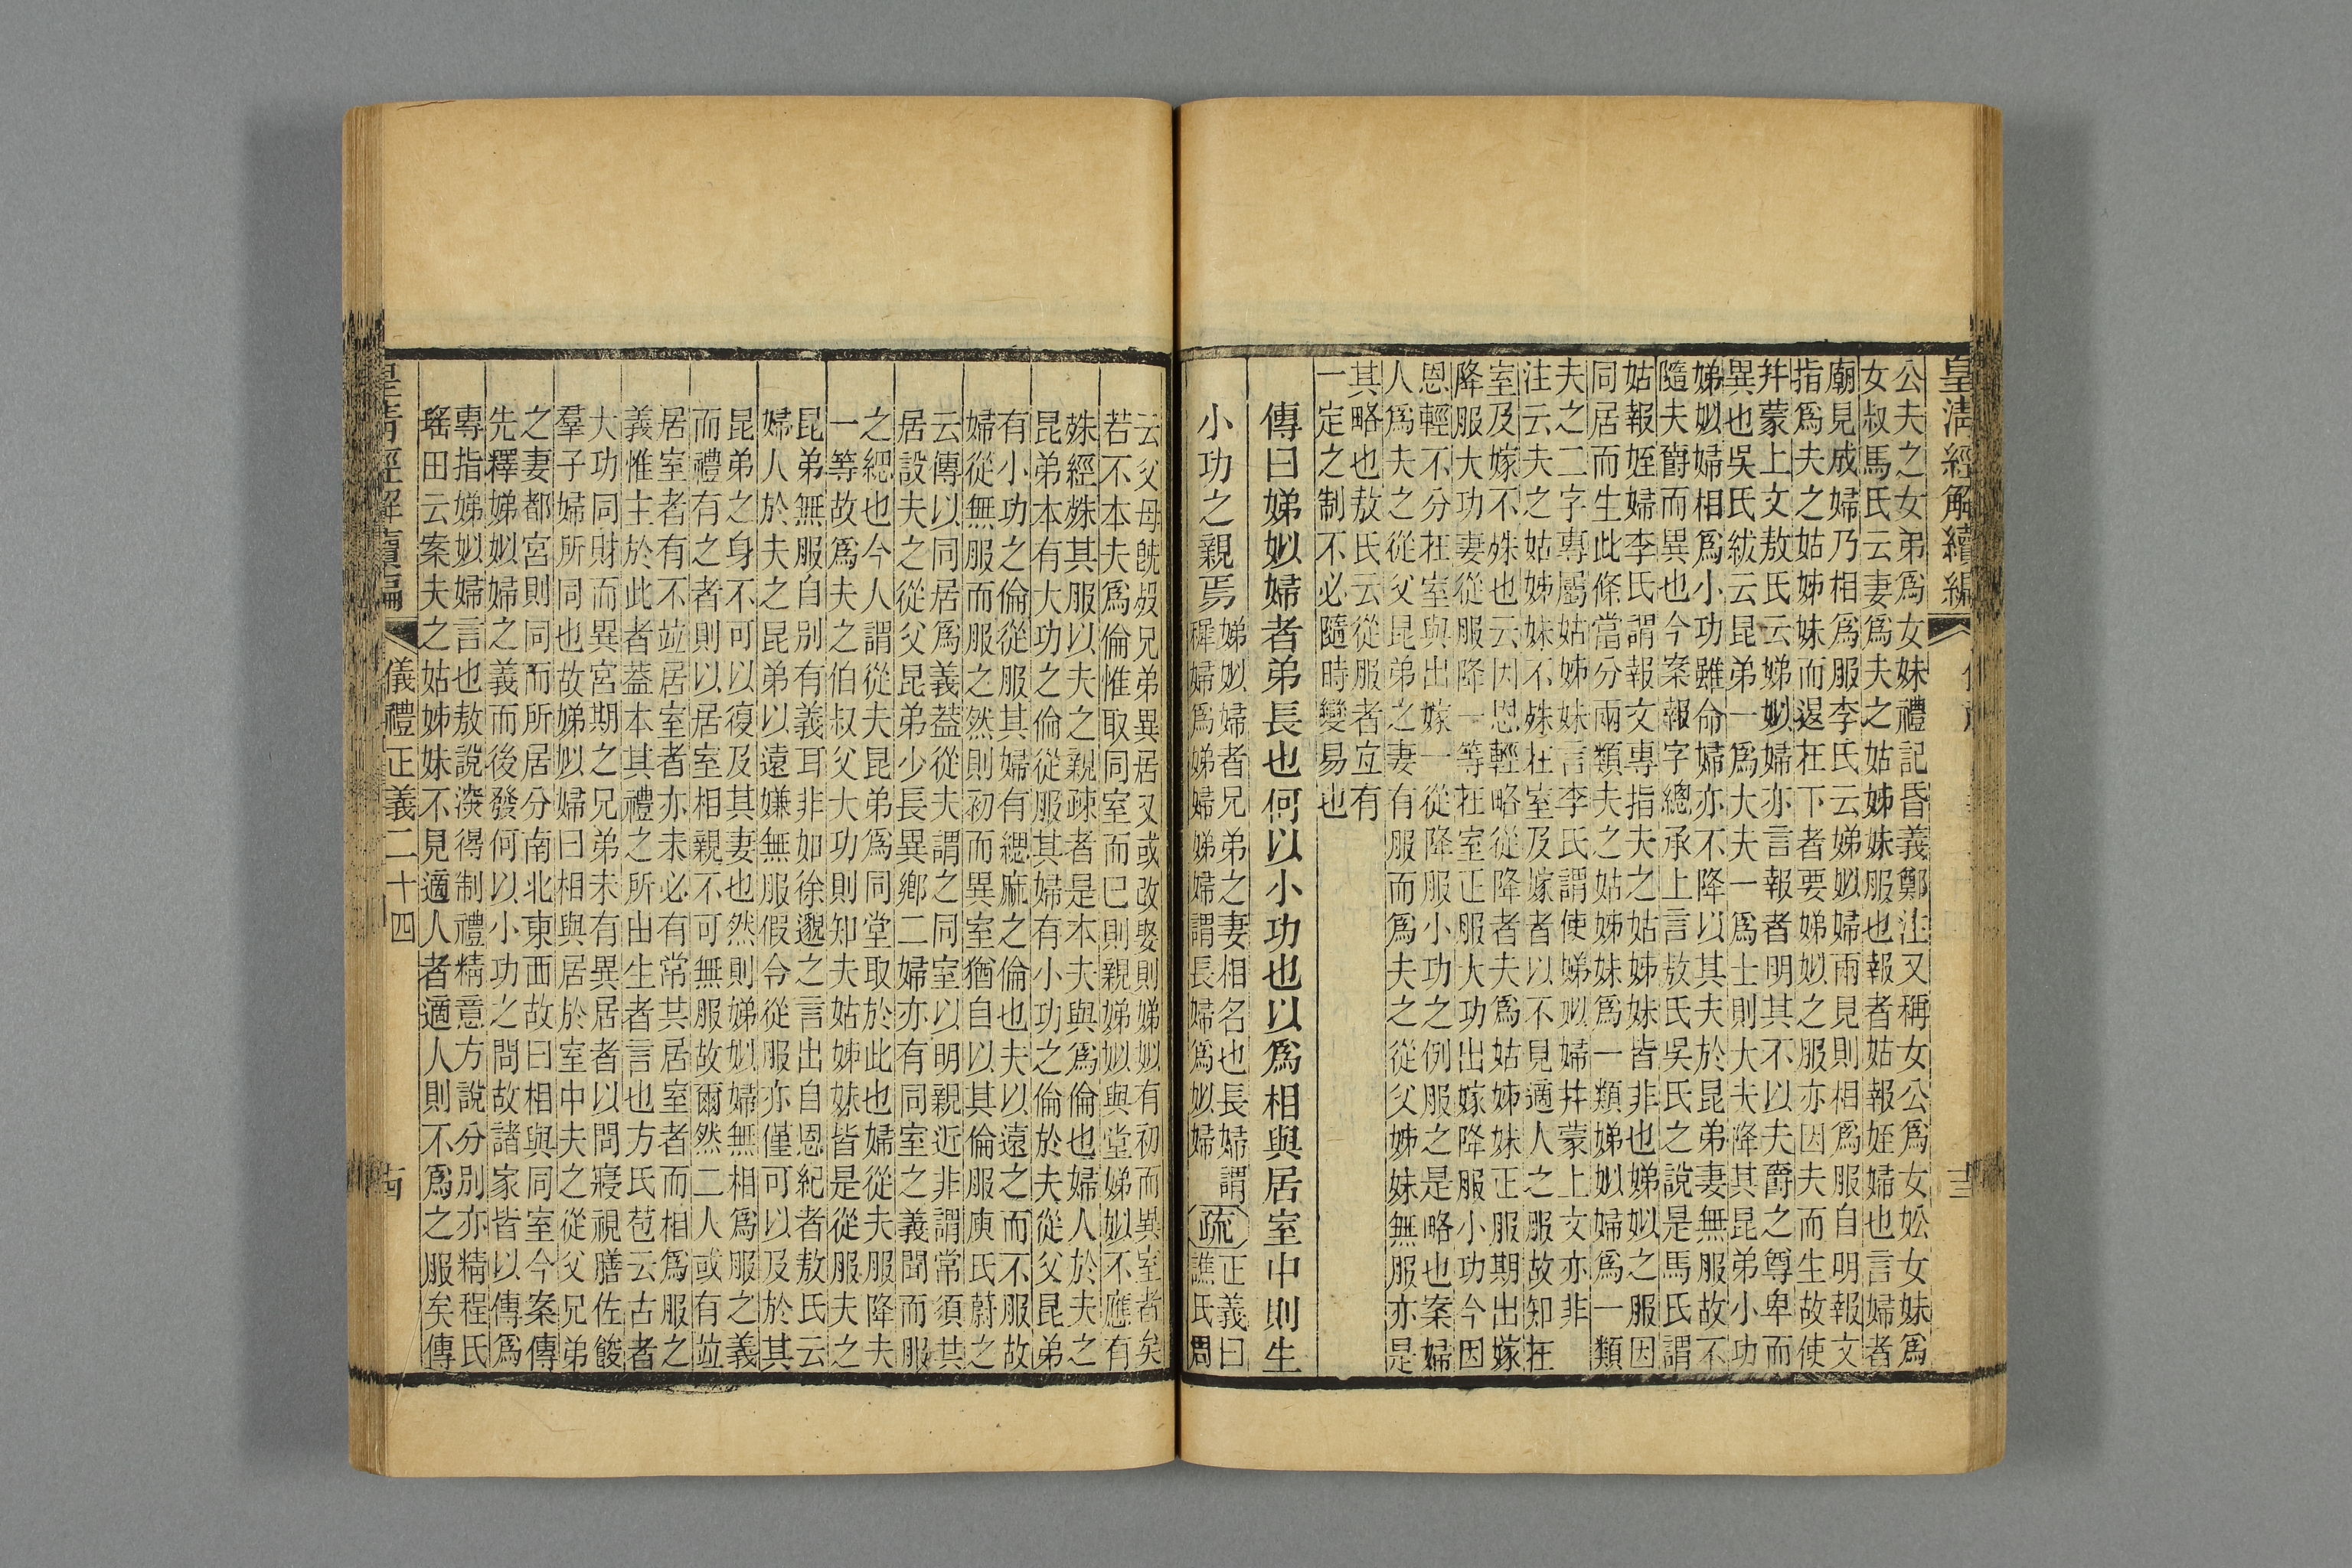 皇清經解續編
公夫之女弟爲女妹禮記昏義鄭注又稱女公爲女妐女妹爲
女叔馬氏云妻爲夫之姑姊妹服也報者姑報姪婦也言婦者
廟見成婦乃相爲服李氏云娣姒婦兩見則相爲服自明報文
指爲夫之姑姊妹而退在下者要娣姒之服亦因夫而生故使
并蒙上文敖氏云娣姒婦亦言報者明其不以夫爵之尊卑而
異也吳氏紱云昆弟一爲大夫一爲士則大夫降其昆弟小功
娣姒婦相爲小功雖命婦亦不降以其夫於昆弟妻無服故不
隨夫爵而異也今案報字總承上言敖氏吳氏之說是馬氏謂
姑報姪婦李氏謂報文專指夫之姑姊妹皆非也娣姒之服因
同居而生此條當分兩類夫之姑姊妹爲一類娣姒婦爲一類
夫之二字專屬姑姊妹言李氏謂使娣姒婦并蒙上文亦非
注云夫之姑姊妹不殊在室及嫁者以不見適人之服故知在
室及嫁不殊也云因恩輕略從降者夫爲姑姊妹正服期出嫁
降服大功妻從服降一等在室正服大功出嫁降服小功今因
恩輕不分在室與出嫁一從降服小功之例服之是略也案婦
人爲夫之從父昆弟之妻有服而爲夫之從父姊妹無服亦是
其略也敖氏云從服者宜有
一定之制不必隨時變易也
傳曰娣姒婦者弟長也何以小功也以爲相與居室中則生
小功之親焉
娣姒婦者兄弟之妻相名也長婦謂
穉婦爲娣婦娣婦謂長婦爲姒婦
疏
正義曰
譙氏周
云父母既歿兄弟異居又或改娶則娣姒有初而異室者矣
若不本夫爲倫惟取同室而已則親娣姒與堂娣姒不應有
殊經殊其服以夫之親疎者是本夫與爲倫也婦人於夫之
昆弟本有大功之倫從服其婦有小功之倫於夫從父昆弟
有小功之倫從服其婦有緦麻之倫也夫以遠之而不服故
婦從無服而服之然則初而異室猶自以其倫服庾氏蔚之
云傳以同居爲義蓋從夫謂之同室以明親近非謂常須共
居設夫之從父昆弟少長異鄉二婦亦有同室之義聞而服
之緦也今人謂從夫昆弟爲同堂取於此也婦從夫服降夫
一等故爲夫之伯叔父大功則知夫姑姊妹皆是從服夫之
昆弟無服自別有義耳非如徐邈之言出自恩紀者敖氏云
婦人於夫之昆弟以遠嫌無服假令從服亦僅可以及於其
昆弟之身不可以復及其妻也然則娣姒婦無相爲服之義
而禮有之者則以居室相親不可無服故爾然二人或有並
居室者有不並居室者亦未必有常其居室者而相爲服之
義惟主於此者蓋本其禮之所由生者言也方氏苞云古者
大功同財而異宮期之兄弟未有異居者以問寢視膳佐餕
羣子婦所同也故娣姒婦曰相與居於室中夫之從父兄弟
之妻都宮則同而所居分南北東西故曰相與同室今案傳
先釋娣姒婦之義而後發何以小功之問故諸家皆以傳爲
專指娣姒婦言也敖說深得制禮精意方說分別亦精程氏
瑤田云案夫之姑姊妹不見適人者適人則不爲之服矣傳
儀禮正義二十四